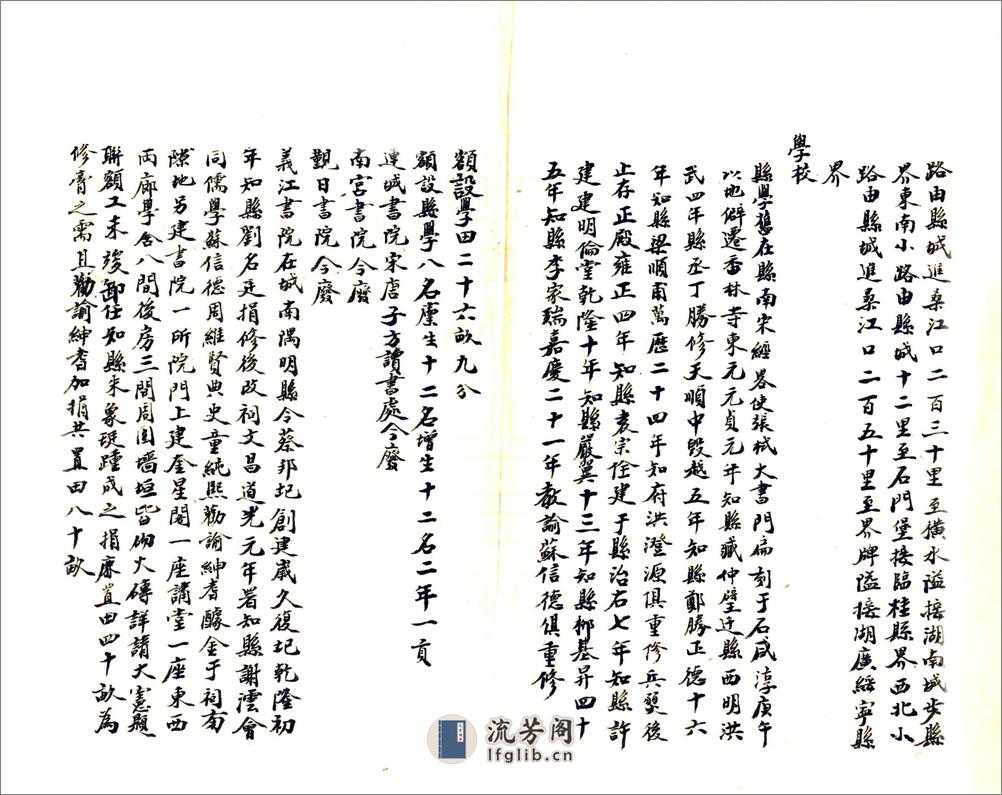 路由縣城進桑江口二百三十里至橫水隘接湖南城步縣
界東南小路由縣城十二里至石門堡接臨桂縣界西北小
路由縣城進桑江口二百五十里至界牌隘接湖廣綏寧縣
界
學校
縣學舊在縣南宋經畧使張栻大書門扁刻于石咸淳庚午
以地僻遷香林寺東元元貞元年知縣臧仲璧迁縣西明洪
武四年縣丞丁勝修天順中毀越五年知縣鄭勝正德十六
年知縣梁順甫萬歷二十四年知府洪澄源俱重修兵燹後
止存正殿雍正四年知縣袁宗佺建于縣治右七年知縣許
建建明倫堂乾隆十年知縣嚴翼十三年知縣柳基昇四十
五年知縣李家瑞嘉慶二十一年教諭蘇信德俱重修
額設學田二十六畝九分
額設縣學八名廩生十二名增生十二名二年一貢
連城書院宋唐子方讀書處今廢
南宮書院今廢
觀日書院今廢
義江書院在城南隅明縣令蔡邦圮創建歲久復圮乾隆初
年知縣劉名廷捐修後改祠文昌道光元年署知縣謝澐會
同儒學蘇信德周維賢典史童純熙勸諭紳耆醵金于祠南
隙地另建書院一所院門上建奎星閣一座講堂一座東西
兩廊學舍八間後房三間周圍墻垣皆砌大磚詳請大憲題
聯額工未竣卸任知縣朱象珽踵成之捐廉置田四十畝為
修膏之需且勸諭紳耆加捐共置田八十畝
流芳阁
lfglib.cn